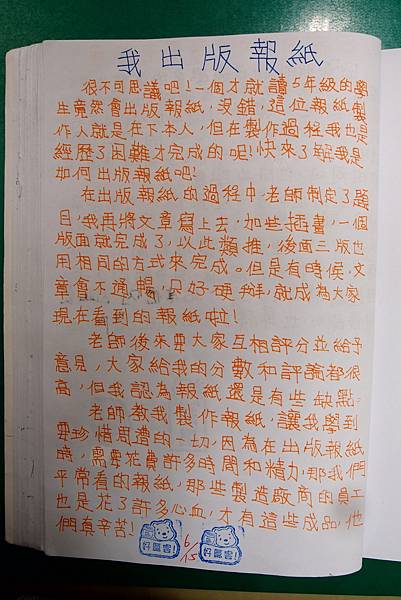 我出版報紙
很不可思議吧!一個才就讀5年級的學
生竟然會出版報紙,沒錯,這位報紙製
作人就是在下本人,但在製作過程我也是
經歷了困難才完成的呢!快來了解我是
如何出版報紙吧!
在出版報紙的過程中,老師制定了題
目,我再將文章寫上去,加些插畫,一個
版面就完成了,以此類推,後面三版也
用相同的方式來完成。但是有時候,文
章會不通暢,只好硬拼,就成為大家
現在看到的報紙啦!
老師後來要大家互相評分並給予
意見,大家給我的分數和評論都很
高,但我認為報紙還是有些缺點。
老師教我製作報紙,讓我學到
要珍惜周遭的一切,因為在出版報紙
時,需要花費許多時間和精力,那我們
平常看的報紙,那些製造廠商的員工
也是花了許多心血,才有這些成品,他
們真辛苦!
好厲害!
6/15
好厲害!